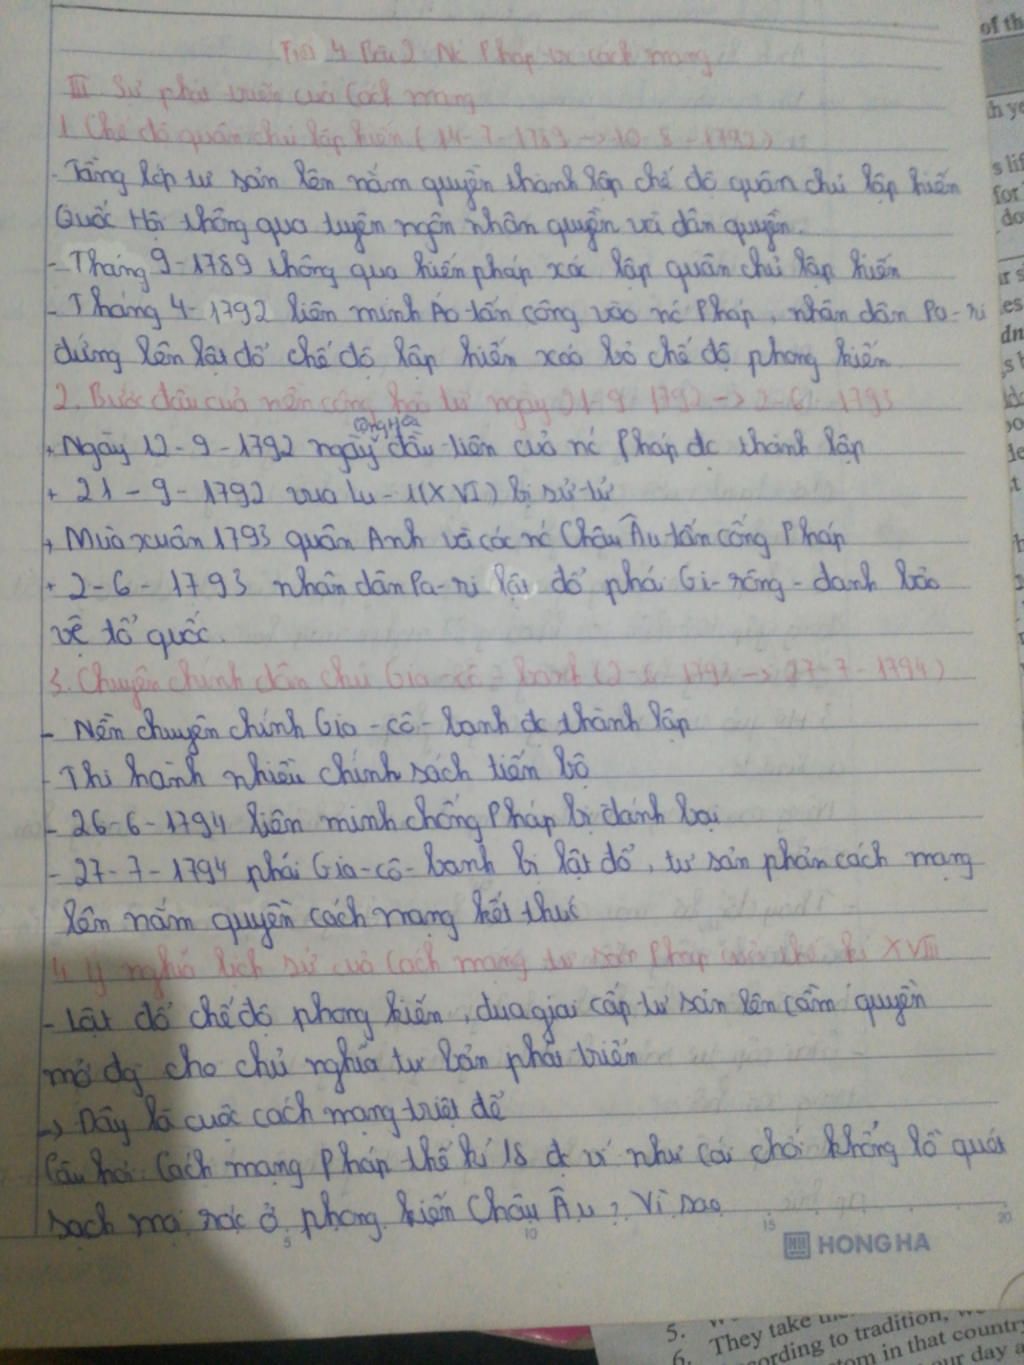 Tiết 4 Bài 2 Nc Pháp tr cách mạng
III Sự phát triển của Cách mạng
1 Chế độ quân chủ lập hiến (14-7-1789 -> 10-8-1792)
- Tầng lớp tư sản lên nắm quyền thành lập chế độ quân chủ lập hiến
Quốc Hội thông qua tuyên ngôn nhân quyền và dân quyền.
- Tháng 9-1789 thông qua hiến pháp xác lập quân chủ lập hiến
- Tháng 4-1792 liên minh Áo tấn công vào nc Pháp, nhân dân Pa-ri
đứng lên lật đổ chế độ lập hiến xoá bỏ chế độ phong kiến
2. Bước đầu của nền cộng hoà từ ngày 21-9-1792 -> 2-6-1793
cộng hoà
+ Ngày 12-9-1792 ngày đầu tiên của nc Pháp đc thành lập
+ 21-9-1792 vua Lu-I(XVI) bị sử tử
+ Mùa xuân 1793 quân Anh và các nc Châu Âu tấn công Pháp
+ 2-6-1793 nhân dân Pa-ri lật đổ phái Gi-rông-danh bảo
vệ tổ quốc.
3. Chuyên chính dân chủ Gia-cô-banh (2-6-1793 -> 27-7-1794)
- Nền chuyên chính Gia-cô-banh đc thành lập
- Thi hành nhiều chính sách tiến bộ
- 26-6-1794 liên minh chống Pháp bị đánh bại
- 27-7-1794 phái Gia-cô-banh bị lật đổ, tư sản phản cách mạng
lên nắm quyền cách mạng kết thúc
4. Ý nghĩa lịch sử của Cách mạng tư sản Pháp cuối thế kỉ XVIII
- Lật đổ chế độ phong kiến, đưa giai cấp tư sản lên cầm quyền
mở đg cho chủ nghĩa tư bản phát triển
-> Đây là cuộc cách mạng triệt để
Câu hỏi Cách mạng Pháp thế kỉ 18 đc ví như cái chổi khổng lồ quét
sạch mọi rác ở phong kiến Châu Âu? Vì sao
5 10 15 20
HH HONG HA
of th
5.
They take
6.
ording to tradition,
tom in that country